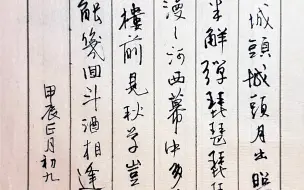 城頭城頭月出照
半解彈琵琶琵琶
漫漫河西幕中多
樓前見秋草豈
能幾回斗酒相逢
甲辰正月初九